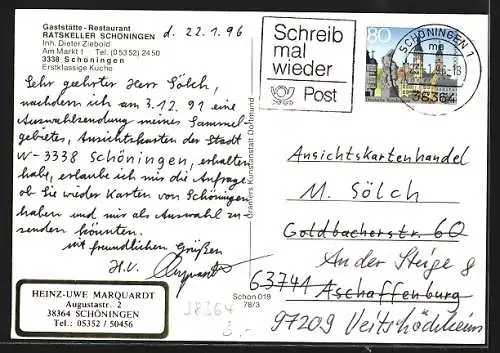 Gaststätte - Restaurant
RATSKELLER SCHÖNINGEN
Inh. Dieter Ziebold
Am Markt 1 Tel. (05352) 2450
3338 Schöningen
Erstklassige Küche
d. 22.1.96
Sehr geehrter Herr Sölch,
nachdem ich am 3.12.91 eine
Auswahlsendung meines Sammel-
gebietes, Ansichtskarten der Stadt
W-3338 Schöningen, erhalten
habe, erlaube ich mir die Anfrage
ob Sie wieder Karten von Schöningen
haben und mir als Auswahl zu-
senden könnten.
mit freundlichen Grüßen
H.U. Marquardt
HEINZ-UWE MARQUARDT
Augustastr. 2
38364 SCHÖNINGEN
Tel.: 05352 / 50456
Cramers Kunstanstalt Dortmund
Schön 019
78/3
38364
3.-
Schreib
mal
wieder
Post
80
Deutsche Bundespost
SCHÖNINGEN 1
ma
38364
Ansichtskartenhandel
M. Sölch
Goldbacherstr. 60
An der Steige 8
63741 Aschaffenburg
97209 Veitshöchheim